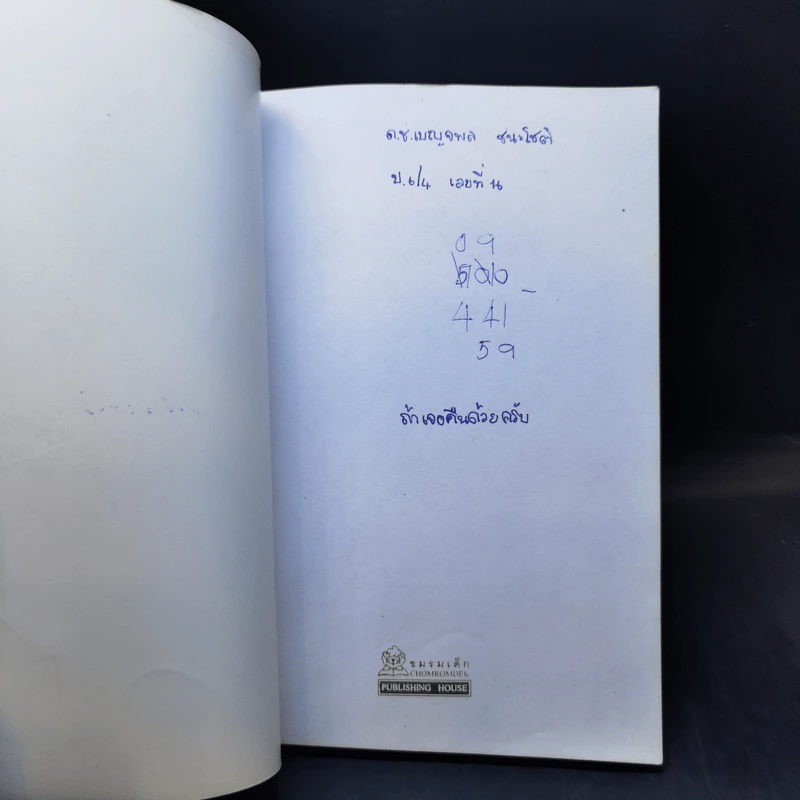 ด.ช.เบญจพล ชนะโชติ
ป.6/4 เลขที่
09
441
59
ถ้าเจอคืนด้วยครับ
ชมรมเด็ก
CHOMROMDEK
PUBLISHING HOUSE